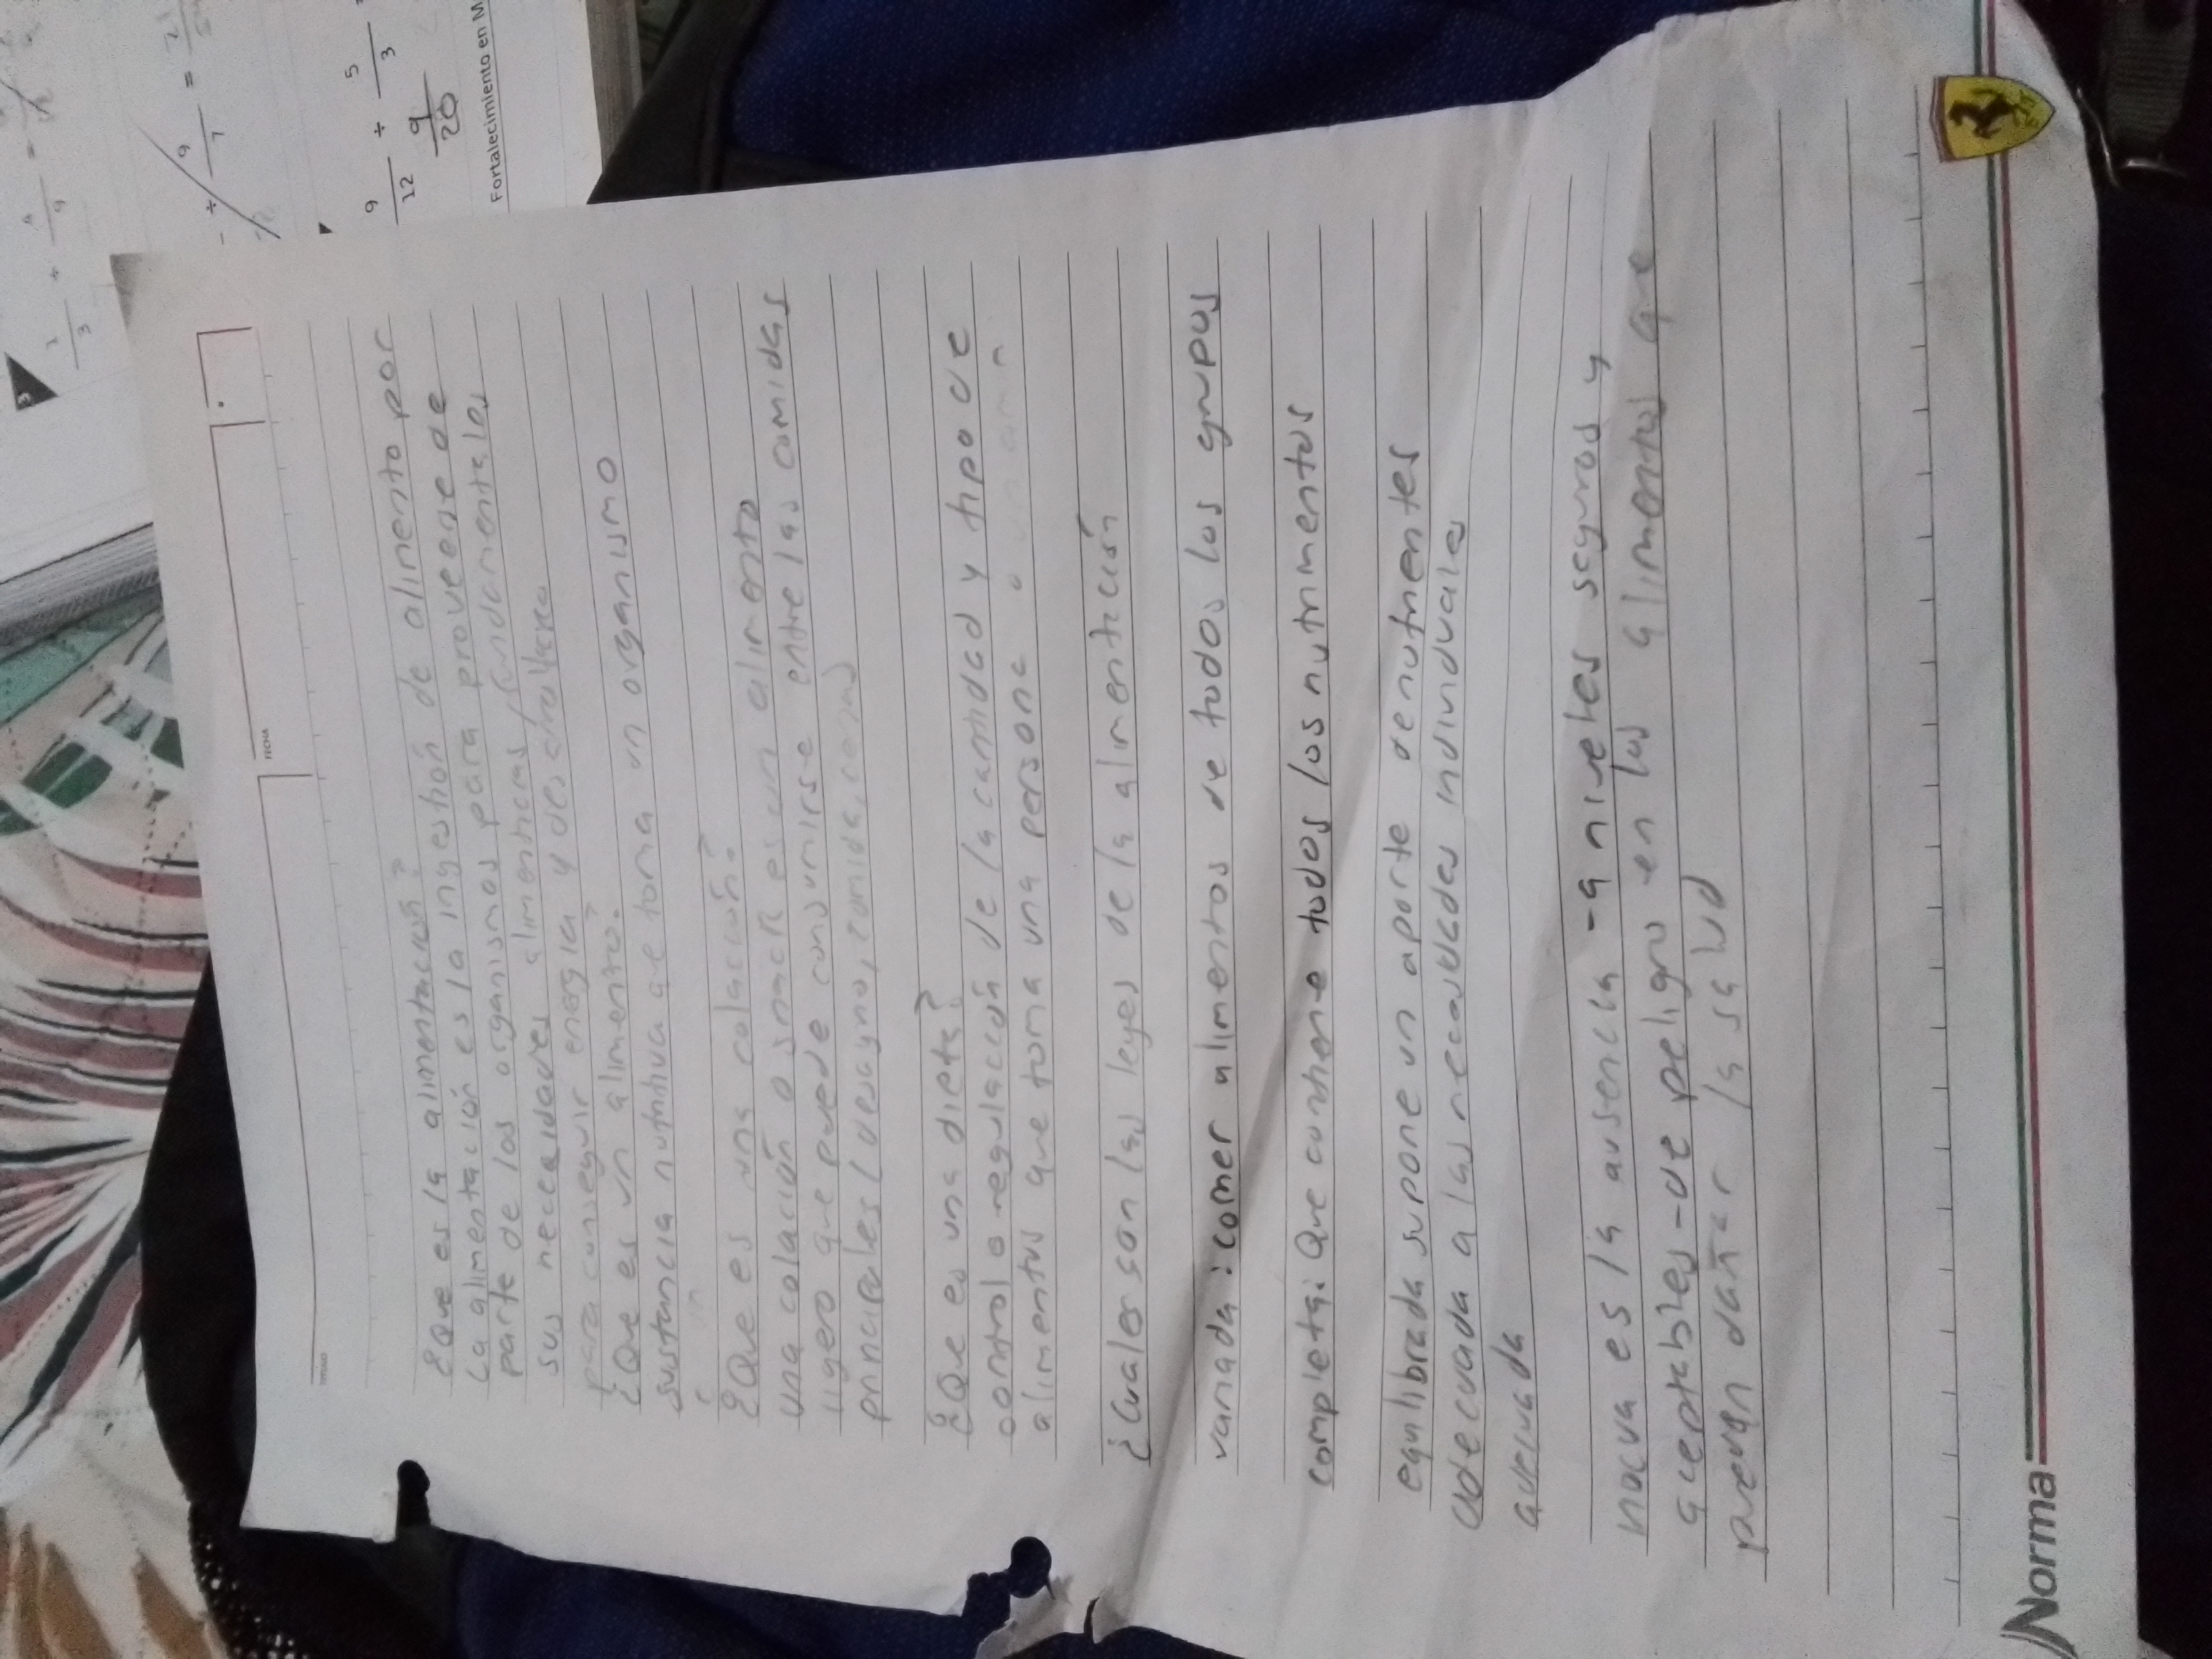 ¿Que es la alimentación?
La alimentación es la ingestión de alimento por
parte de los organismos para proveerse de
sus necesidades alimenticias fundamentales
para conseguir energía y
¿Que es un alimento?
sustancia nutritiva que toma un organismo
¿Que es una colación?
una colación o snack es un alimento
ligero que puede consumirse entre las comidas
principales (desayuno, comida, cena)
¿Que es una dieta?
control o regulación de la cantidad y tipo de
alimentos que toma una persona o un
¿Cuales son las leyes de la alimentación
variada: comer alimentos de todos los grupos
completa: Que contiene todos los nutrimentos
equilibrada supone un aporte de nutrientes
adecuada a las individuales
adecuada
inocua es la ausencia - a niveles seguros y
aceptables - de peligro en los alimentos que
pueden dañar la salud
Norma
FECHA
9/12 ÷ 5/3 =
9/20
Fortalecimiento en M